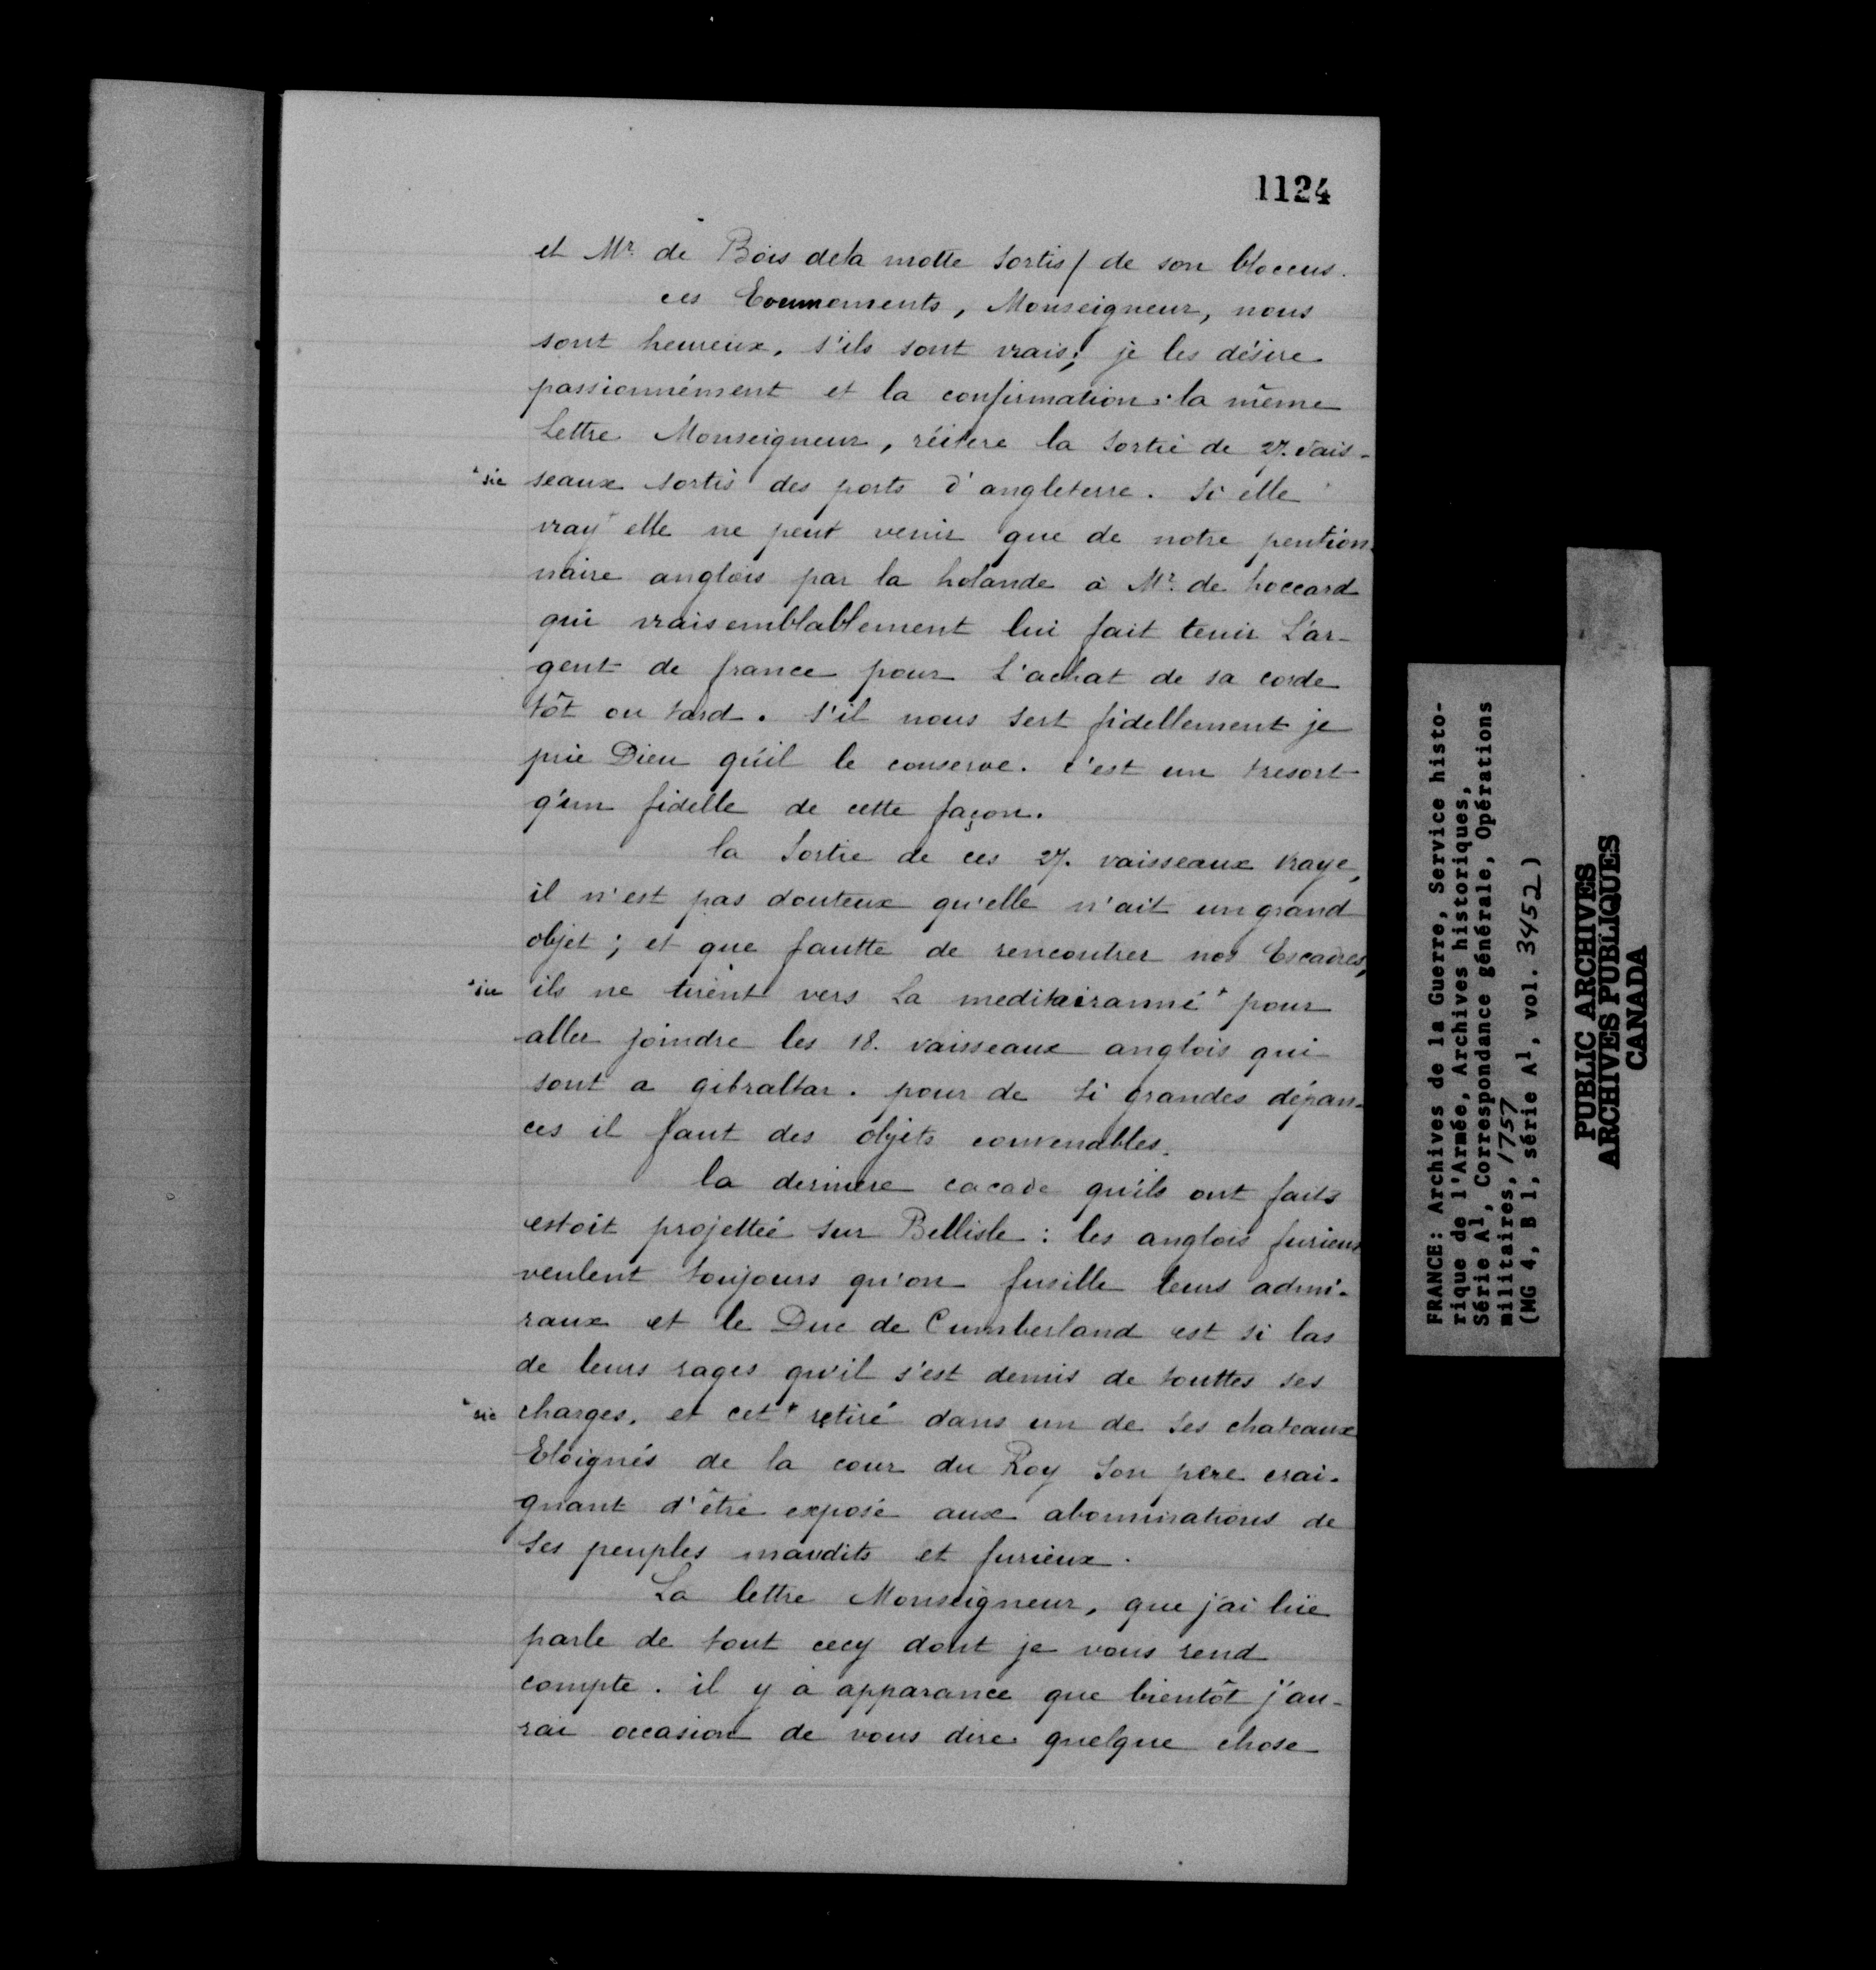 1124
et Mr. de Bois dela motte sortis / de son bloccus.
ces Evennements, Monseigneur, nous
sont heureux, s'ils sont vrais; je les désire
passionnément et la confirmation: la même
Lettre Monseigneur, réitere la sortie de 27. vais-
*sic seaux sortis des ports d'angleterre. Si elle
vray* elle ne peut venir que de notre pention-
naire anglois par la holande à Mr. de hoccard
qui vraisemblablement lui fait tenir L'ar-
gent de france pour L'achat de sa corde
tôt ou tard. S'il nous sert fidellement je
prie Dieu qu'il le conserve. c'est un tresort
q'un fidelle de cette façon.
la Sortie de ces 27. vaisseaux vraye,
il n'est pas douteux qu'elle n'ait un grand
objet; et que fautte de rencontrer nos Escadres,
*sic ils ne tirent vers la meditairanné* pour
aller joindre les 18. vaisseaux anglois qui
sont a gibraltar. pour de si grandes dépan-
ces il faut des objets convenables.
la derniere cacade qu'ils ont faits
estoit projettée sur Bellisle: les anglois furieux
veulent toujours qu'on fusille leurs admi-
raux et le Duc de Cumberland est si las
de leurs rages qu'il s'est demis de touttes ses
*sic charges, et cet* retiré dans un de ses chateaux
Eloignés de la cour du Roy Son pere crai-
gnant d'être exposé aux abominations de
ses peuples maudits et furieux.
La lettre Monseigneur, que j'ai lüe
parle de tout cecy dont je vous rend
compte. il y a apparance que bientôt j'au-
rai occasion de vous dire quelque chose
FRANCE: Archives de la Guerre, Service histo-
rique de l'Armée, Archives historiques,
Série A1, Correspondance générale, Opérations
militaires, 1757
(MG 4, B 1, série A1, vol. 3452)
PUBLIC ARCHIVES
ARCHIVES PUBLIQUES
CANADA